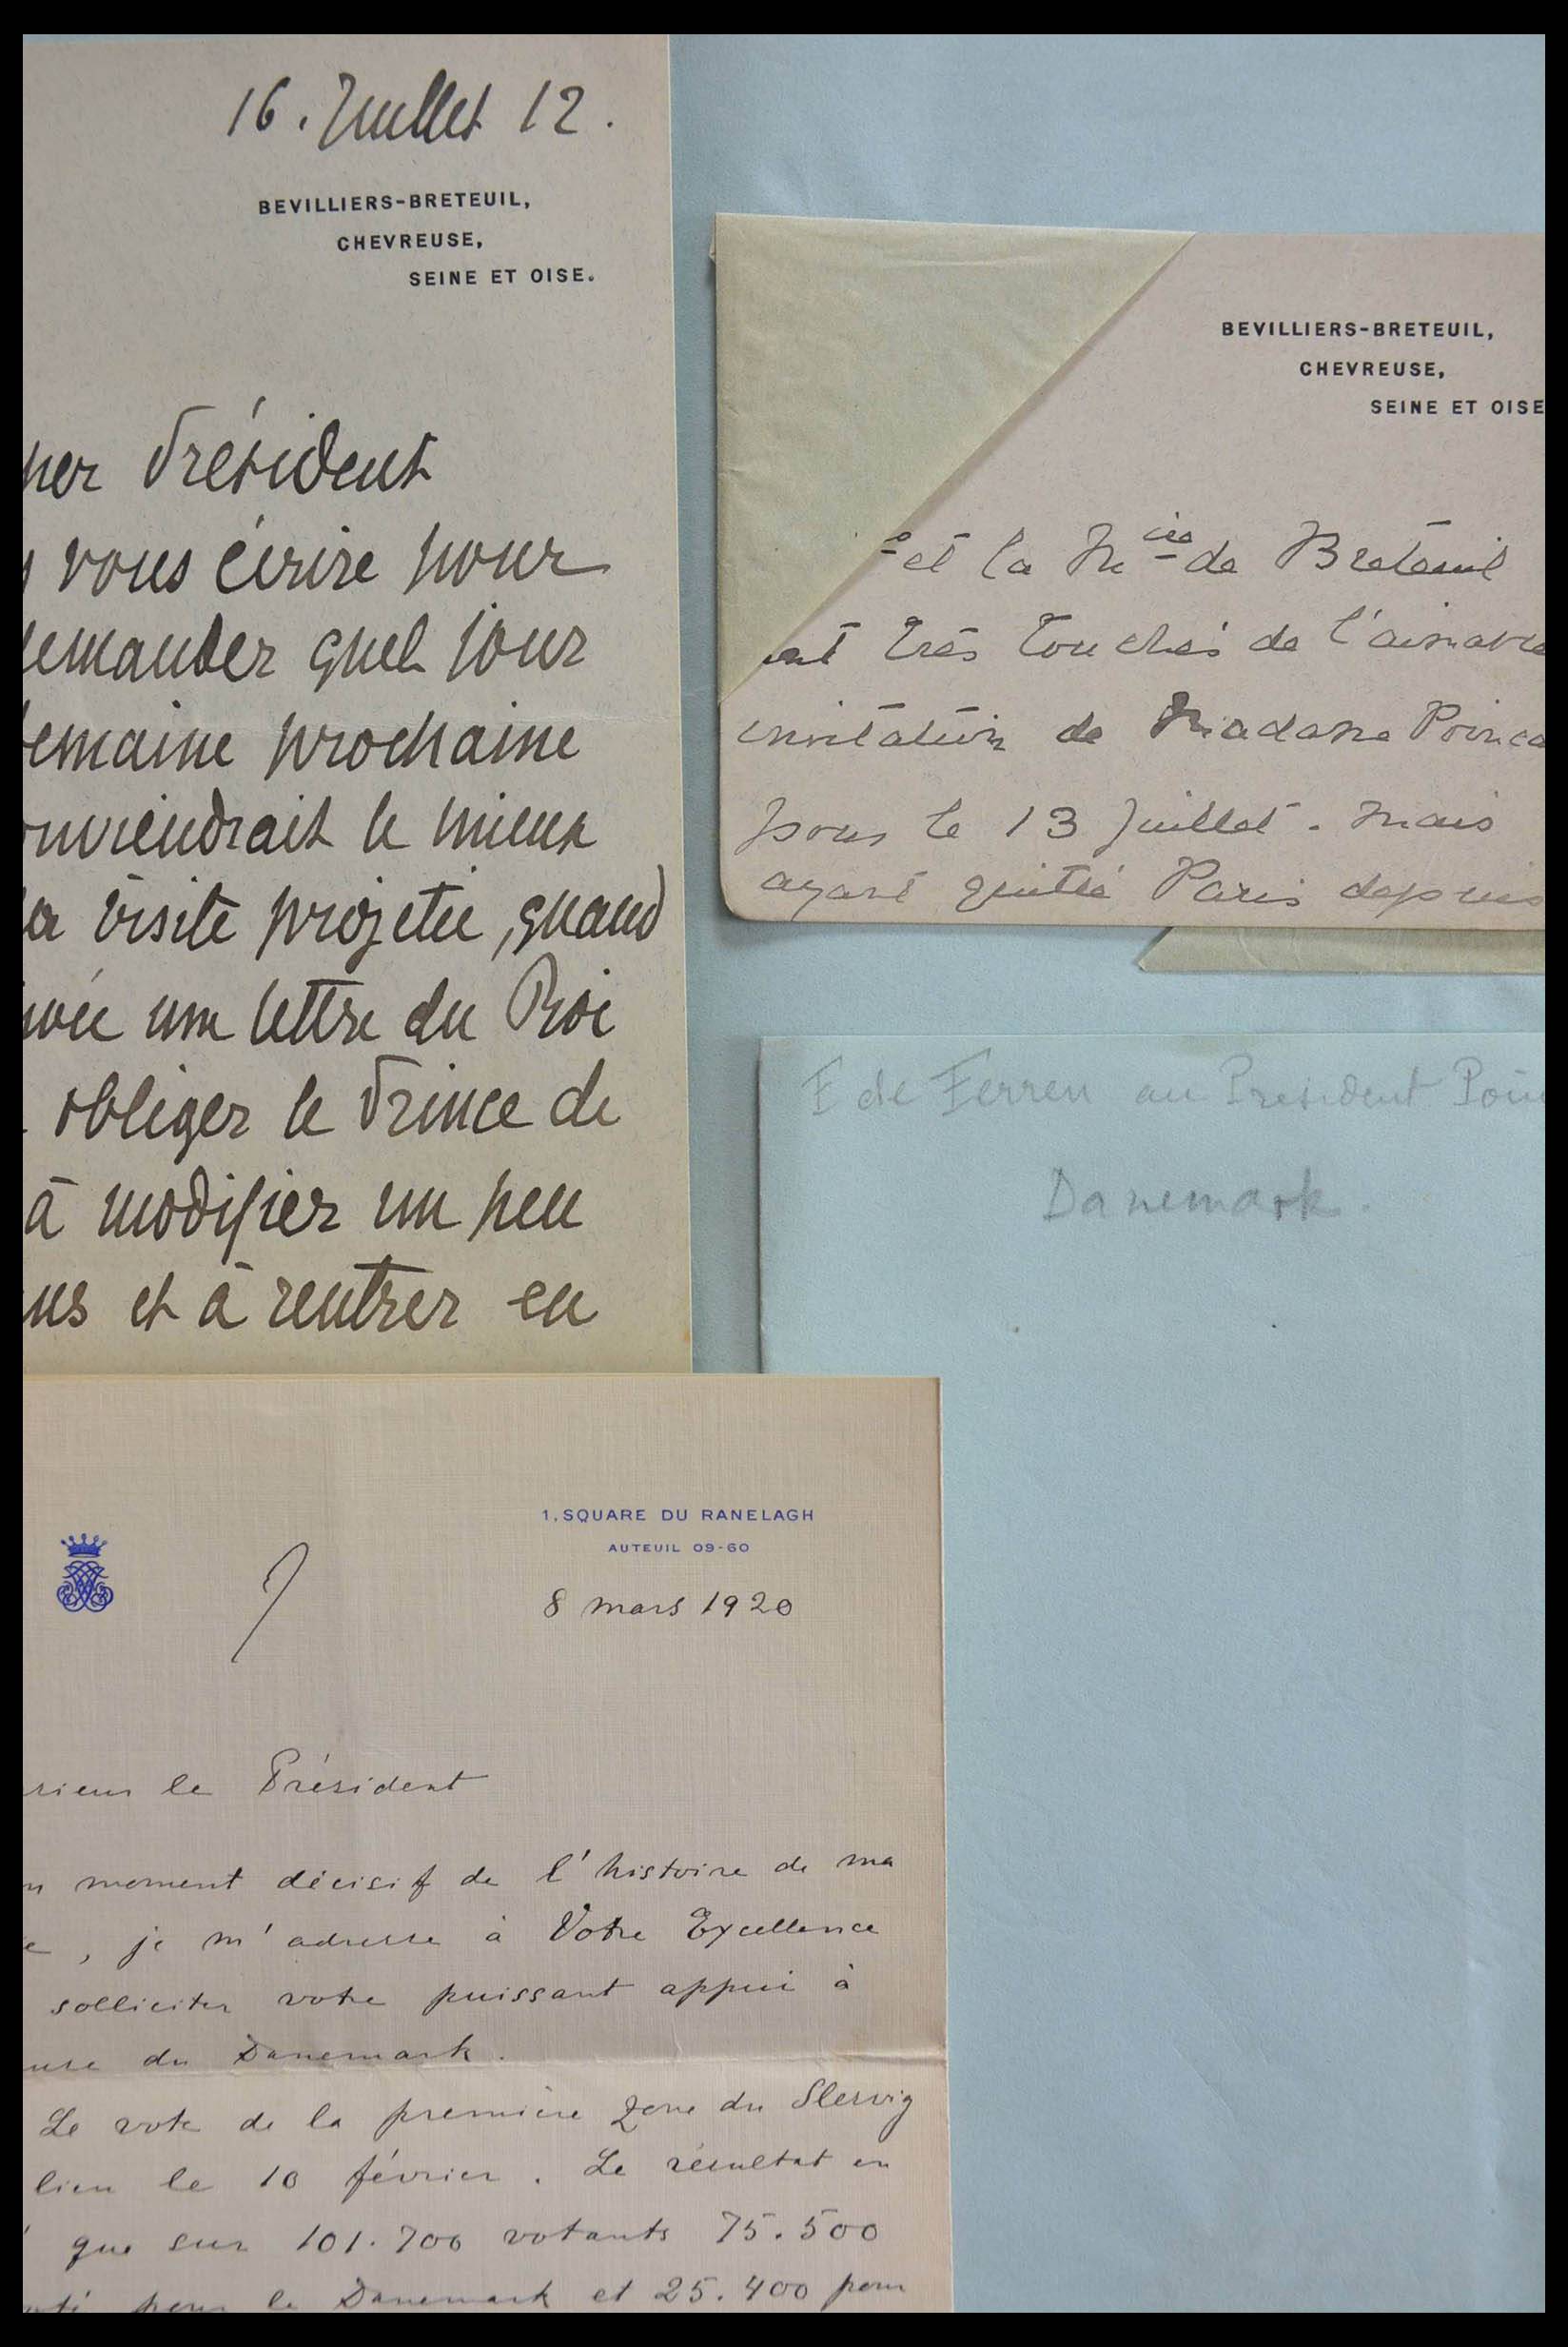 16. Juillet 12.
BEVILLIERS-BRETEUIL,
CHEVREUSE,
SEINE ET OISE.
her Président
vous écrire pour
demander quel jour
semaine prochaine
onviendrait le mieux
la visite projetée, quand
ivée une lettre du Roi
obliger le Prince de
à modifier un peu
ns et à rentrer en
BEVILLIERS-BRETEUIL,
CHEVREUSE,
SEINE ET OISE
et la Mise de Breteuil
ont très touchés de l'aimable
invitation de Madame Poinca
pour le 13 Juillet. Mais
ayant quitté Paris depuis
F de Ferren au President Poin
Danemark.
1. SQUARE DU RANELAGH
AUTEUIL 09-60
8 mars 1920
sieur le Président
n moment décisif de l'histoire de ma
e, je m'adresse à Votre Excellence
solliciter votre puissant appui à
use du Danemark.
Le vote de la première zone du Slesvig
lieu le 10 février. Le résultat en
que sur 101.700 votants 75.500
oté pour le Danemark et 25.400 pour